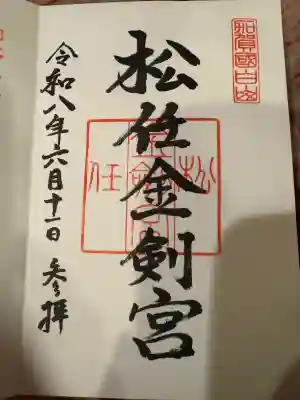 加賀國白山
松任金剣宮
松任
令和八年六月十一日 参拝